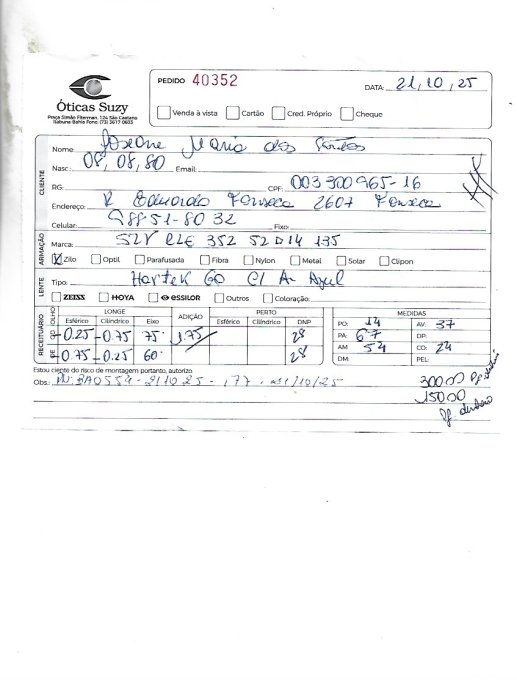 Óticas Suzy
Praça Simão Fiterman, 124 São Caetano
Itabuna Bahia Fone (73) 3617 0603
PEDIDO 40352
DATA: 21, 10, 25
Venda à vista Cartão Cred. Próprio Cheque
CLIENTE
Nome: Joseane Maria dos Santos
Nasc.: 08, 08, 80 Email:
RG: CPF: 003300965-16
Endereço: R Eduardo Fonseca 2607 Fonseca
Celular: 98851-8032 Fixo:
ARMAÇÃO
Marca: 352 52 D 14 135
Zilo Optil Parafusada Fibra Nylon Metal Solar Clipon
LENTE
Tipo: GO C/ A- Azul
ZEISS HOYA essilor Outros Coloração:
RECEITUÁRIO
OLHO LONGE ADIÇÃO PERTO MEDIDAS
Esférico Cilíndrico Eixo Esférico Cilíndrico DNP
-0.25 -0.75 75 1.75 28
-0.75 -0.25 60 28
PO: 14 AV: 37
PA: 67 DP:
AM: 54 CO: 24
DM: PEL:
Estou ciente do risco de montagem portanto, autorizo.
Obs.: 211025-177
300.00
150.00